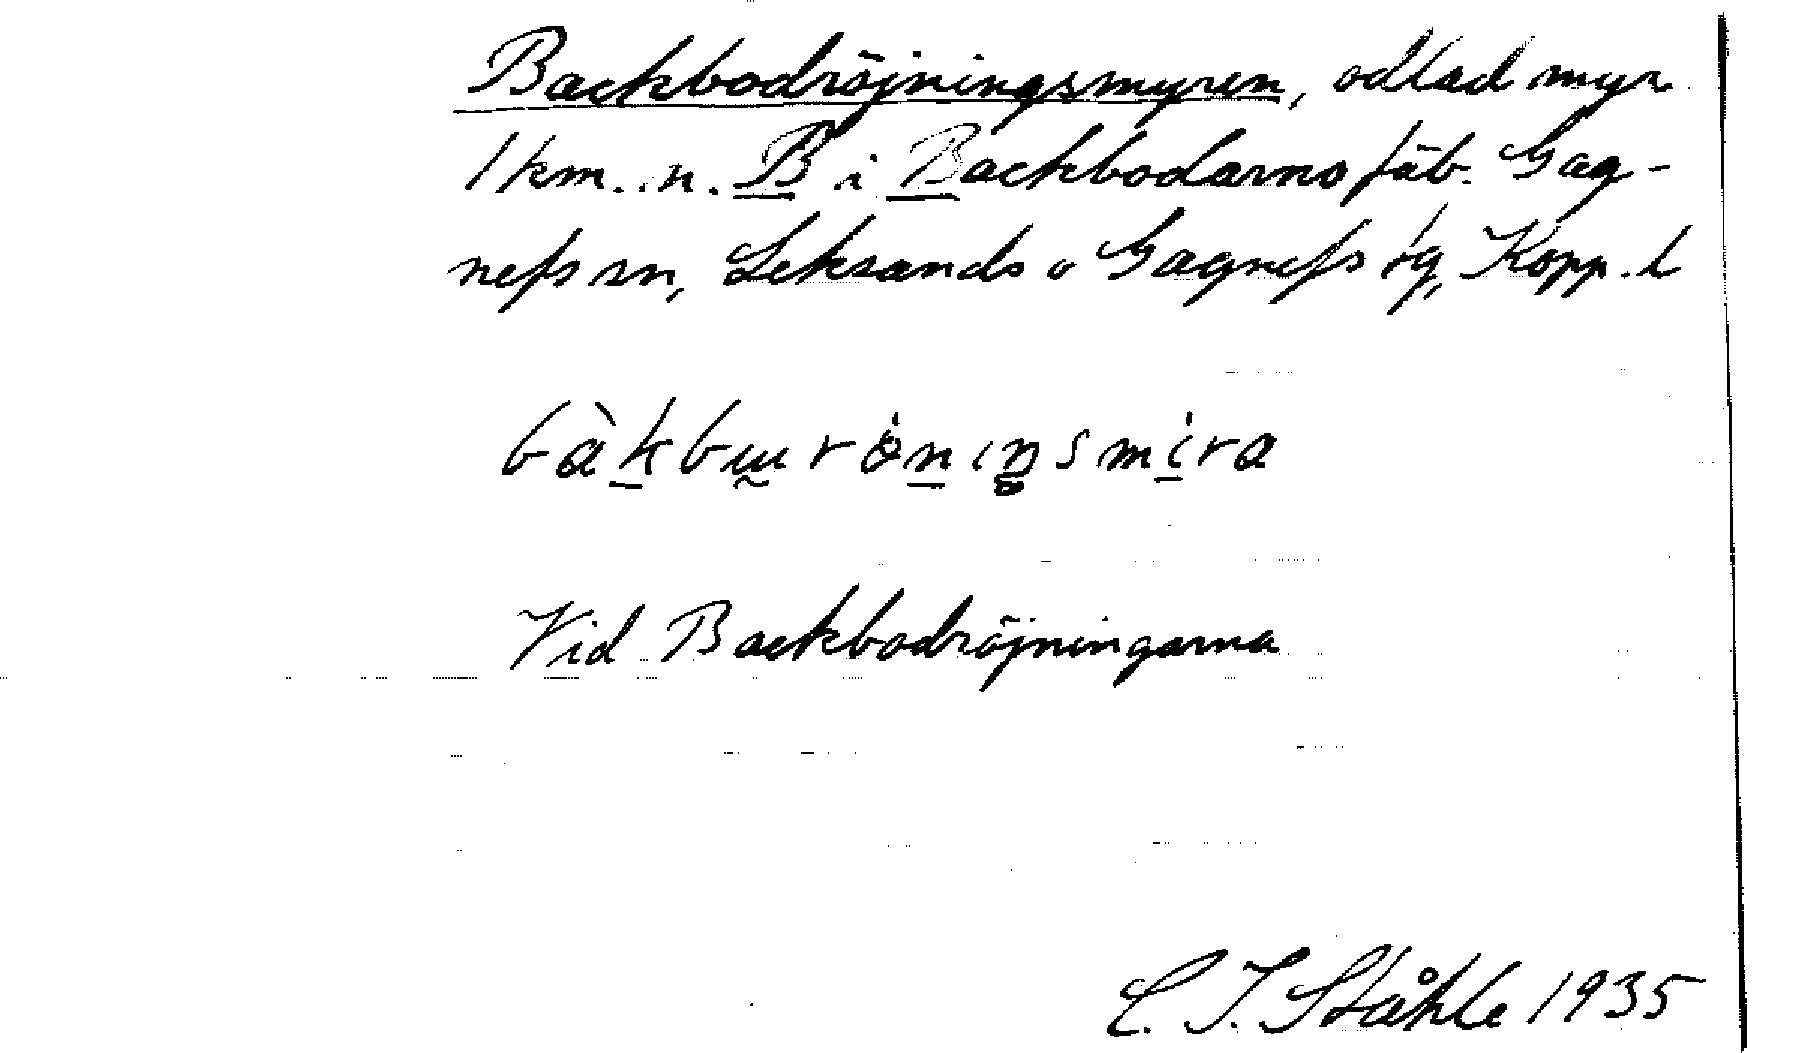 Backbodröjningsmyren, odlad myr
1 km. n. B i Backbodarnas fäb. Gag-
nefs sn, Leksands o Gagnefs tg, Kopp. l
bàkbɯröni̱ŋsmi̱ra
Vid Backbodröjningarna
C. I. Ståhle 1935